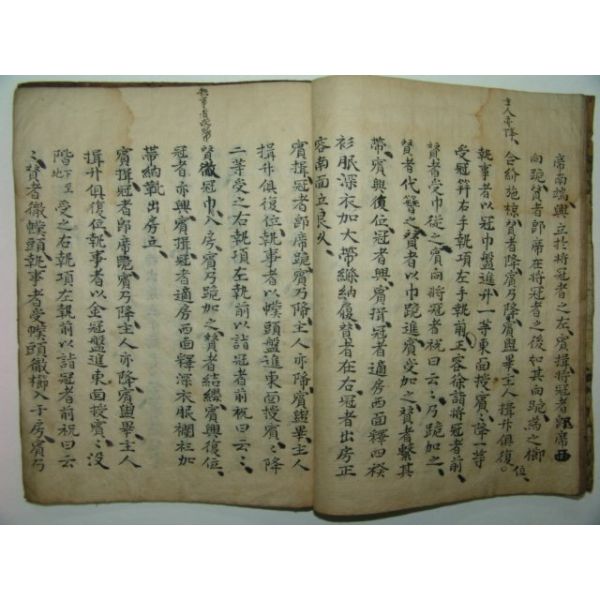 主人亦降
席南端興立於將冠者之左賓揖將冠者卽席西
向跪贊者卽席在將冠者之後如其向跪爲之櫛
合紒施掠贊者降賓乃降賓盥畢主人揖升俱復位
執事者以冠巾盤進升一等東面授賓賓降一等
受冠笄右手執項左手執前正容徐詣將冠者前
賓者受巾從之賓向將冠者祝曰云〻乃跪加之
贊者代簪之贊者以巾跪進賓受加之贊者繫其
帶賓興復位冠者興賓揖冠者適房西面釋四䙆
衫服深衣加大帶絛納履贊者在右冠者出房正
容南面立良久
賓揖冠者卽席跪賓乃降主人亦降賓盥畢主人
揖升俱復位執事者以幞頭盤進東面授賓〻降
二等受之右執項左執前以詣冠者前祝曰云〻
執事者脫帶
贊徹冠巾入房賓乃跪加之贊者結纓賓興復位
冠者亦興賓揖冠者適房西面釋深衣服襴衫加
帶納靴出房立
賓揖冠者卽席跪賓乃降主人亦降賓盥畢主人
揖升俱復位執事者以金冠盤進東面授賓〻沒
階下至地受之右執項左執前以詣冠者前祝曰云
〻贊者徹幞頭執事者受幞頭徹櫛入于房賓乃